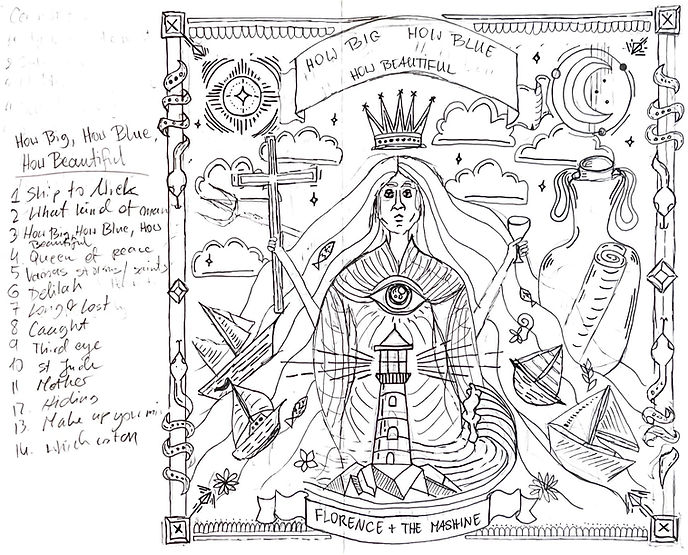 How Big, How Blue,
How Beautiful
1 Ship to Wreck
2 What kind of man
3 How Big, How Blue, How
Beautiful
4. Queen of peace
5 Various storms / saints
6 Delilah
7 Long & Lost
8 Caught
9 Third eye
10 St Jude
11 Mother
12. Hiding
13. Make up your mi
14. Which witch
HOW BIG HOW BLUE
HOW BEAUTIFUL
FLORENCE + THE MASHINE